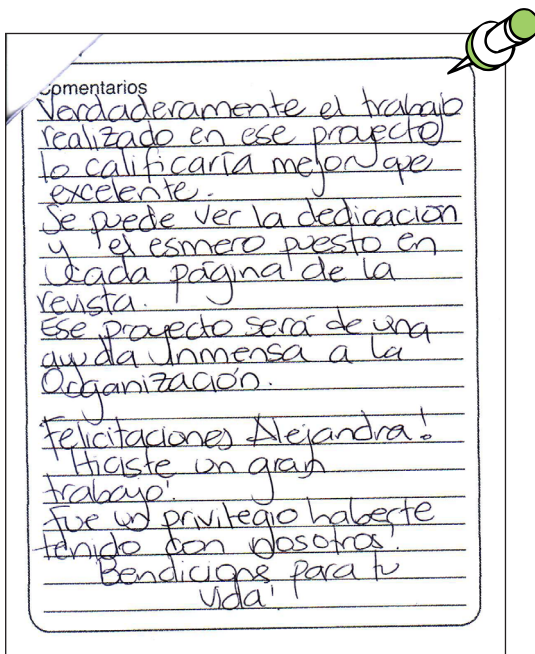 Comentarios
Verdaderamente el trabajo
realizado en ese proyecto
lo calificaría mejor que
excelente.
Se puede ver la dedicación
y el esmero puesto en
cada página de la
revista.
Ese proyecto será de una
ayuda inmensa a la
Organización.
Felicitaciones Alejandra!
Hiciste un gran
trabajo!
Fue un privilegio haberte
tenido con nosotros!
Bendiciones para tu
vida!